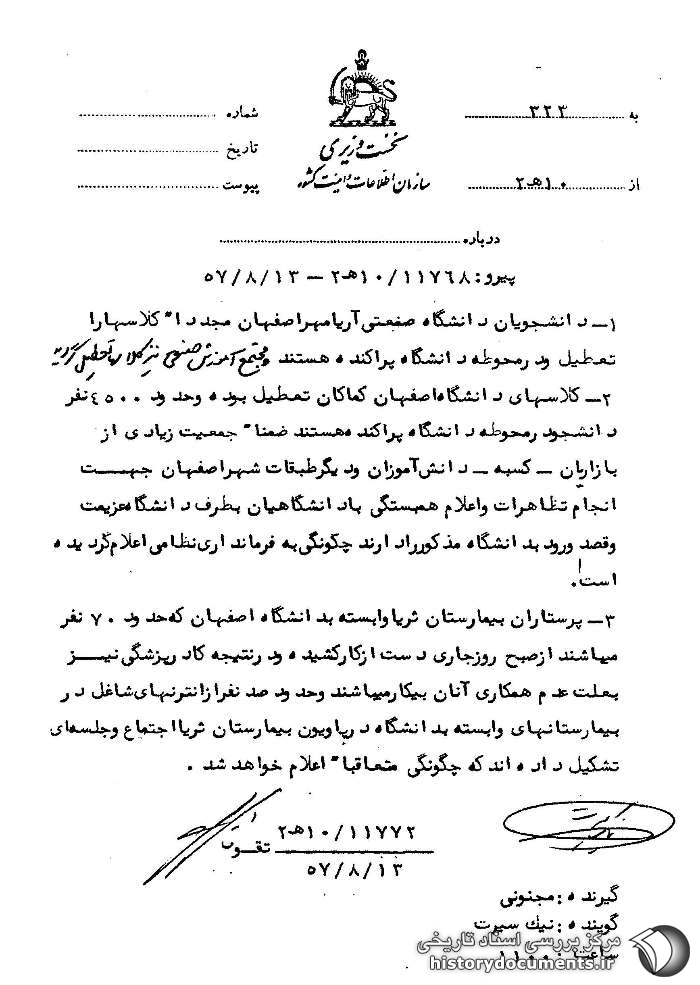 به ۳۲۳
شماره
نخست وزیری
تاریخ
سازمان اطلاعات و امنیت کشور
از ۱۰هـ۲
پیوست
درباره
پیرو: ۱۰/۱۱۷۶۸هـ۲ – ۵۷/۸/۱۳
۱– دانشجویان دانشگاه صنعتی آریامهر اصفهان مجددا" کلاسها را
تعطیل و در محوطه دانشگاه پراکنده هستند و مجتمع آموزش فنی نیز کلاسها تعطیل گردیده
۲– کلاسهای دانشگاه اصفهان کماکان تعطیل بوده و حدود ۴۵۰۰ نفر
دانشجو در محوطه دانشگاه پراکنده هستند ضمنا" جمعیت زیادی از
بازاریان – کسبه – دانش‌آموزان و دیگر طبقات شهر اصفهان جهت
انجام تظاهرات و اعلام همبستگی با دانشگاهیان بطرف دانشگاه عزیمت
و قصد ورود به دانشگاه مذکور را دارند چگونگی به فرمانداری نظامی اعلام گردیده
است.
۳– پرستاران بیمارستان ثریا وابسته بدانشگاه اصفهان که حدود ۷۰ نفر
میباشند از صبح روز جاری دست از کار کشیده و در نتیجه کادر پزشگی نیز
بعلت عدم همکاری آنان بیکار میباشند و حدود صد نفر از انترنهای شاغل در
بیمارستانهای وابسته بدانشگاه در پاویون بیمارستان ثریا اجتماع و جلسه‌ای
تشکیل داده‌اند که چگونگی متعاقبا" اعلام خواهد شد.
۱۰/۱۱۷۷۲هـ۲
تقوی
۵۷/۸/۱۳
گیرنده: مجنونی
گوینده: نیک سیرت
ساعت: ۱۱۰۰
مرکز بررسی اسناد تاریخی
historydocuments.ir